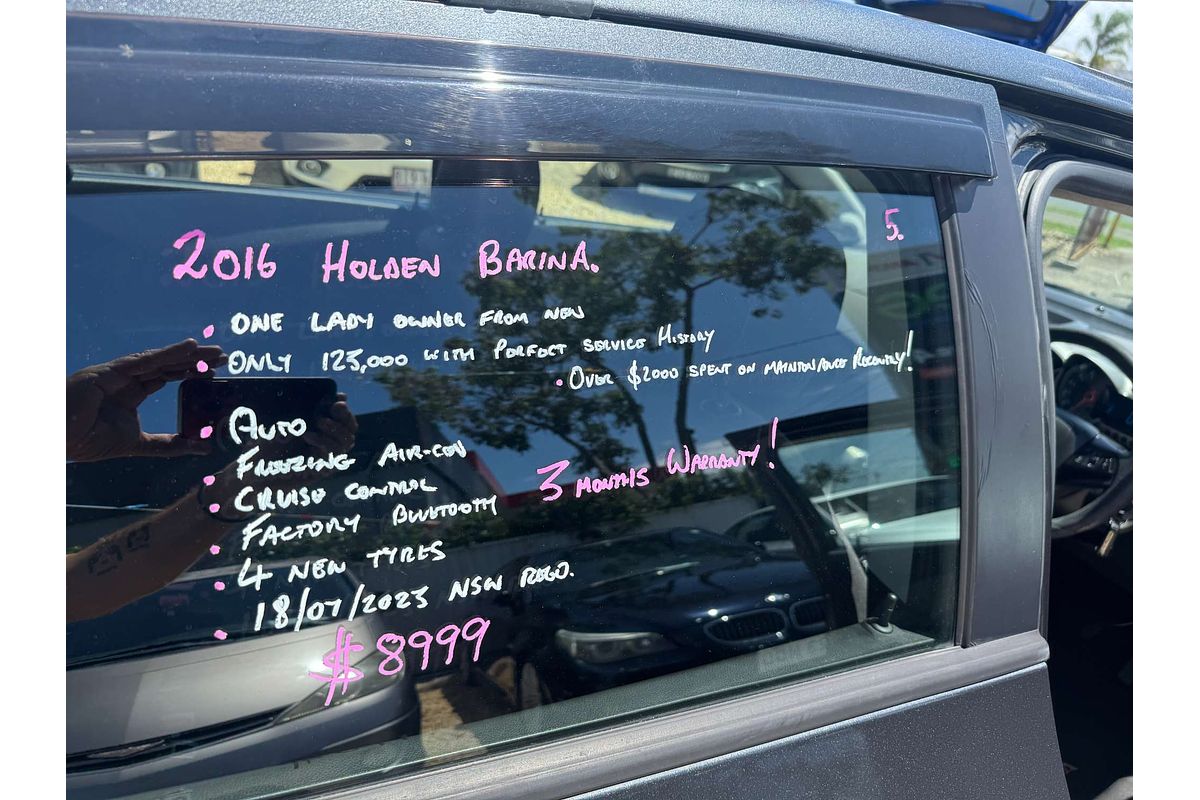 5.
2016 HOLDEN BARINA.
• ONE LADY OWNER FROM NEW
• ONLY 123,000 WITH PERFECT SERVICE HISTORY
• OVER $2000 SPENT ON MAINTENANCE RECENTLY!
• AUTO
• FREEZING AIR-CON
• CRUISE CONTROL
• FACTORY BLUETOOTH
• 4 NEW TYRES
• 18/07/2023 NSW REGO.
3 MONTHS WARRANTY!
$8999